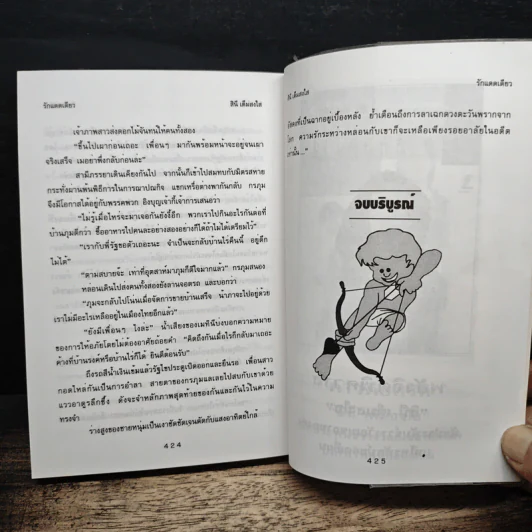 รักแดดเดียว
สินี เต็มสงใส
เจ้าภาพสาวส่งดอกไม้จันทน์ให้คนทั้งสอง
"ขึ้นไปเผาก่อนเถอะ เพื่อนๆ มากันพร้อมหน้าจะอยู่จนเผา
จริงเสร็จ เมอยาพึ่งกลับก่อนล่ะ"
สามีภรรยาเดินเคียงกันไป จากนั้นก็เข้าไปสมทบกับมิตรสหาย
กระทั่งผ่านพ้นพิธีการในการฌาปณกิจ แขกเหรื่อต่างพากันกลับ กรภุม
จึงมีโอกาสได้อยู่กับพรรคพวก อิงบุญเจ้ากี้เจ้าการเสนอว่า
"ไม่รู้เมื่อไหร่จะมาเจอกันยังงี้อีก พวกเราไปกินอะไรกันต่อที่
บ้านภุมดีกว่า ซื้ออาหารไปคนละอย่างสองอย่างก็ได้ถ้าไม่ได้เตรียมไว้"
"เรากับพี่รัฐขอตัวเถอะนะ จำเป็นจะกลับบ้านไร่คืนนี้ อยู่ดึก
ไม่ได้"
"ตามสบายจ้ะ เท่าที่อุตสาห์มาภุมก็ดีใจมากแล้ว" กรภุมสนอง
หล่อนเดินไปส่งคนทั้งสองยังลานจอดรถ และบอกว่า
"ภุมจะกลับไปโน่นเมื่อจัดการขายบ้านเสร็จ น้าภาจะไปอยู่ด้วย
เราไม่มีอะไรเหลืออยู่ในเมืองไทยอีกแล้ว"
"ยังมีเพื่อนๆ ไงล่ะ" น้ำเสียงของเมทินีบ่งบอกความหมาย
ของการให้อภัยโดยไม่ต้องอาศัยถ้อยคำ "คิดถึงกันเมื่อไรก็กลับมาเถอะ
ค้างที่บ้านรงค์หรือบ้านไร่ก็ได้ ยินดีต้อนรับ"
ถึงรถสีน้ำเงินเข้มแล้วรัฐไชประตูเปิดออกและยืนรอ เพื่อนสาว
กอดไหล่กันเป็นการอำลา สายตาของกรภุมแลเลยไปสบกับเขาด้วย
แววอาดูรลึกซึ้ง ดังจะจำหลักภาพสุดท้ายของกันและกันไว้ในความ
ทรงจำ
ร่างสูงของชายหนุ่มเป็นเงาชัดชัดเจนตัดกับแสงอาทิตย์ใกล้
424
สินี เต็มสงใส
รักแดดเดียว
ที่เป็นฉากอยู่เบื้องหลัง ย้ำเตือนถึงการลาเฉกดวงตะวันพรากจาก
ความรักระหว่างหล่อนกับเขาก็จะเหลือเพียงรอยอาลัยในอดีต
จบบริบูรณ์
425